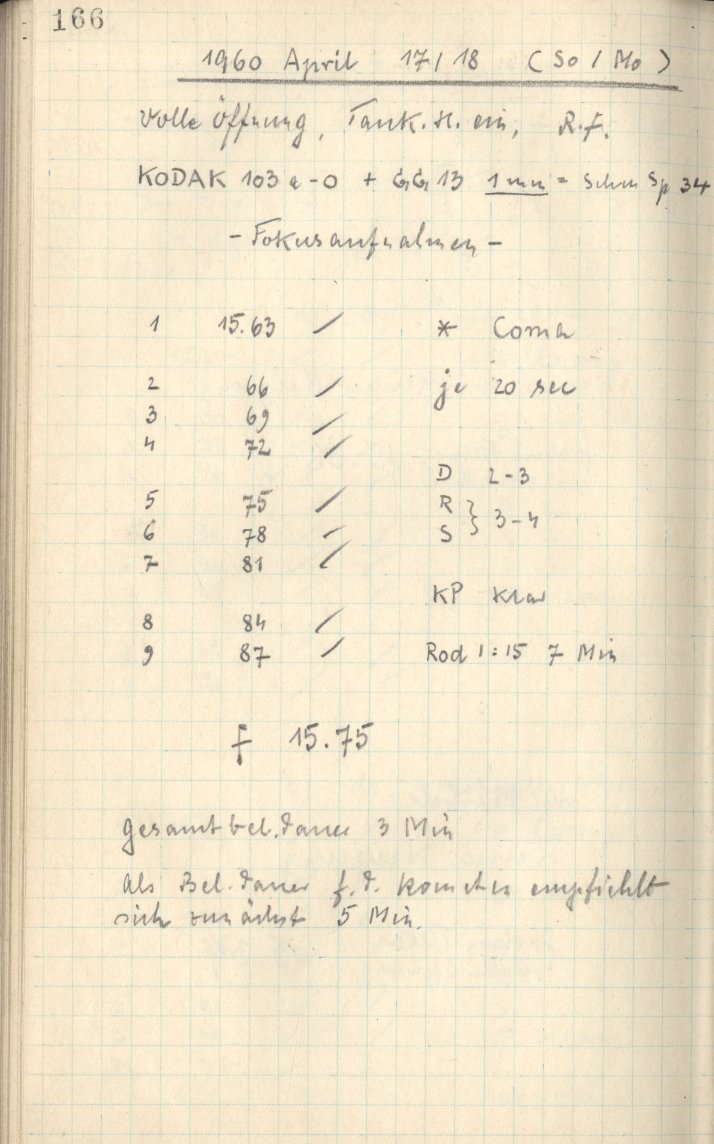 166
1960 April 17/18 (So/Mo)
Volle Öffnung, Tank.H. ein, R.F.
KODAK 103 a-O + GG 13 1 mm = Schm Sp 34
- Fokusaufnahmen -
1 15.63 / * Coma
2 66 / je 20 sec
3 69 /
4 72 /
D 2-3
5 75 / R } 3-4
6 78 / S
7 81 /
KP klar
8 84 /
9 87 / Rod 1:15 7 Min
f 15.75
Gesamtbel.dauer 3 Min
Als Bel.dauer f.d. Kometen empfiehlt
sich zunächst 5 Min.